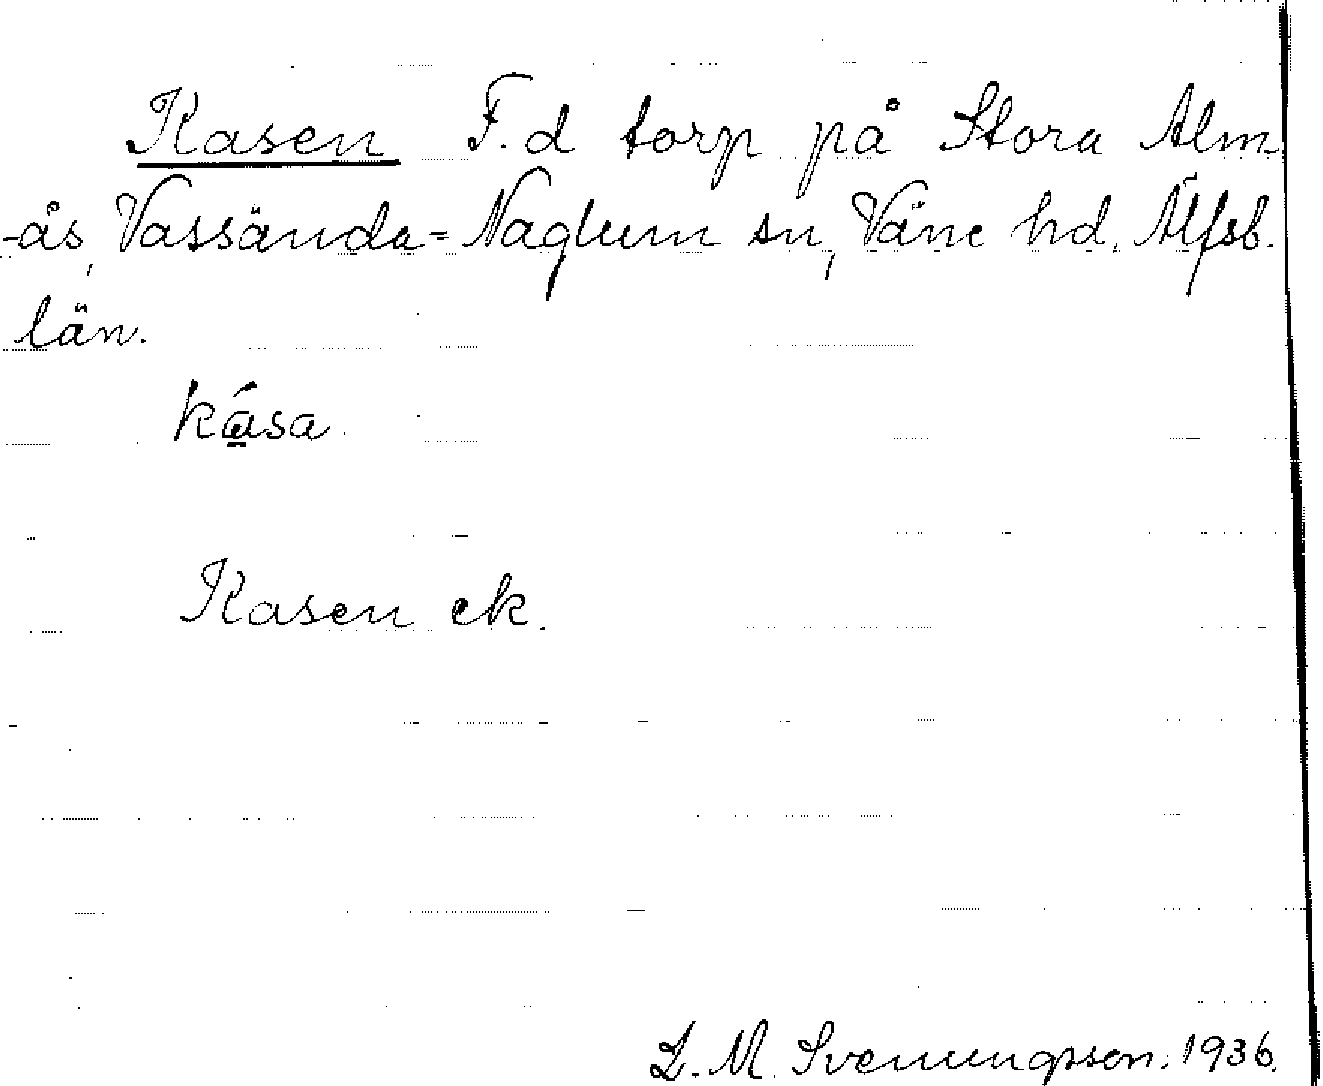 Kasen F.d torp på Stora Alm
-ås, Vassända-Naglum sn, Väne hd, Älfsb.
län.
kása
Kasen ek.
L. M. Svenungsson. 1936.